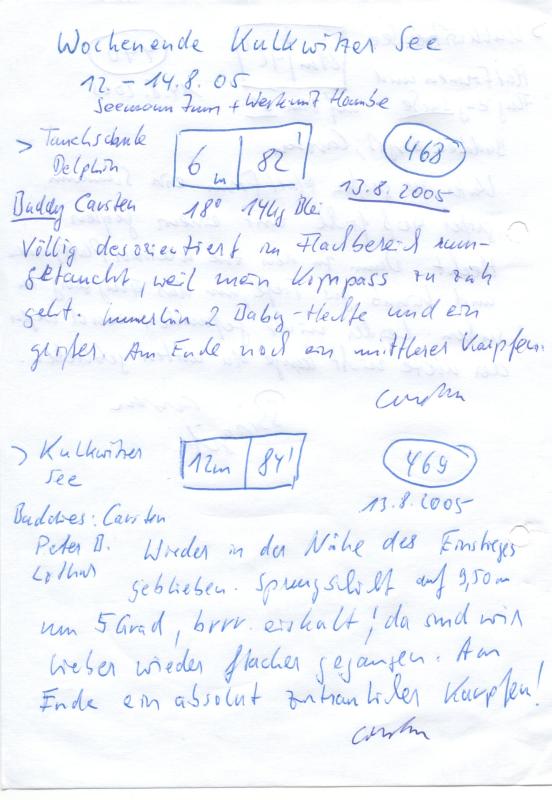 Wochenende Kulkwitzer See
12. – 14.8.05
Seemann Turm + Werkmit Hambe
> Tauchschule Delphin
6m | 82'
468
13.8.2005
Buddy Carsten 18° 14kg Blei
Völlig desorientiert im Flachbereich rum-
getaucht, weil mein Kompass zu zäh
geht. Immerhin 2 Baby-Hechte und ein
großer. Am Ende noch ein mittlerer Karpfen.
Carsten
> Kulkwitzer See
12m | 84'
469
13.8.2005
Buddies: Carsten
Peter B.
Lothar
Wieder in der Nähe des Einstieges
geblieben. Sprungschicht auf 9,50m
um 5 Grad, brrr. eiskalt, da sind wir
lieber wieder flacher gegangen. Am
Ende ein absolut zutraulicher Karpfen!
Carsten